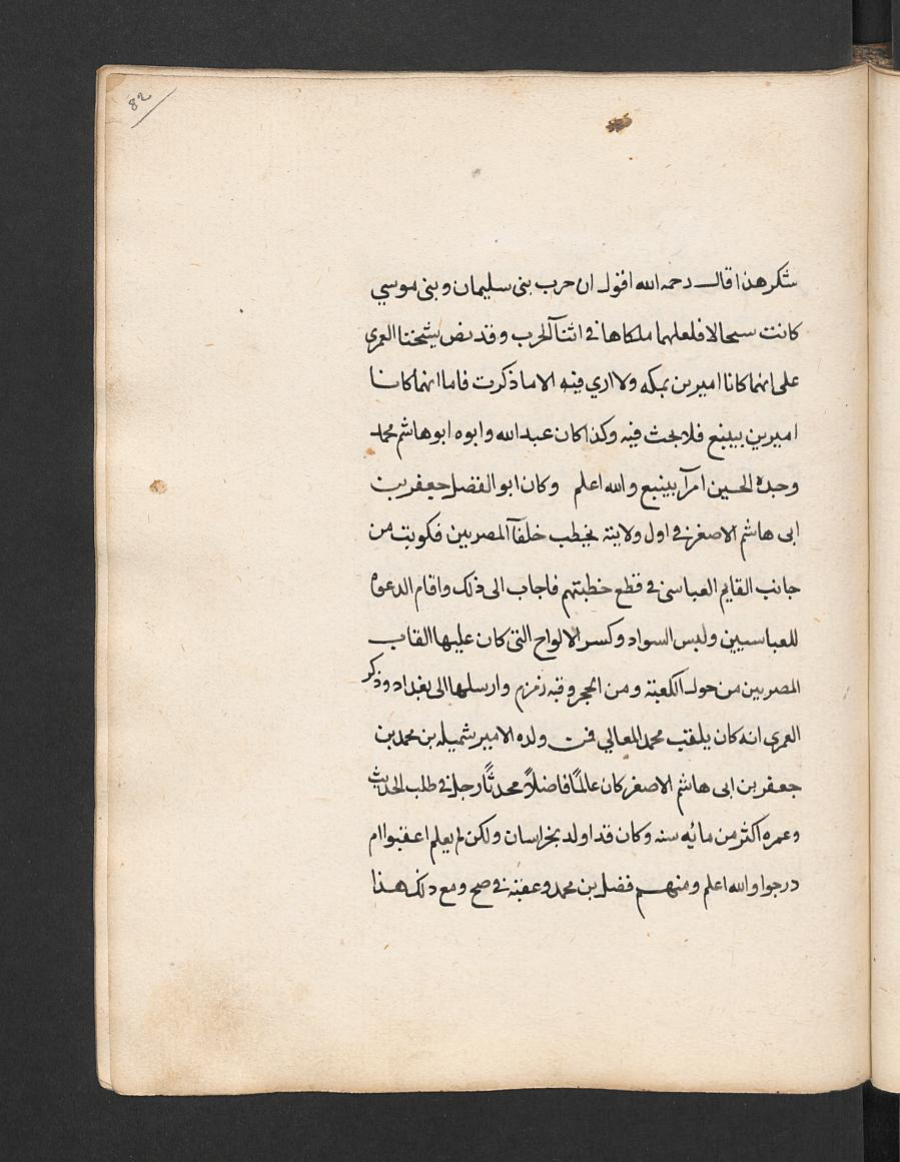 82
شكر هذا قال رحمه الله اقول ان حرب بنى سليمان وبنى موسي
كانت سجالا فلعلهما ملكاها في اثنآ الحرب وقد نص شيخنا العمري
على انهما كانا اميرين بمكه ولا اري فيه الا ما ذكرت فاما انهما كانا
اميرين بينبع فلا بحث فيه وكذا كان عبد الله وابوه ابو هاشم محمد
وجده الحسين امرآ بينبع والله اعلم وكان ابو الفضل جعفر بن
ابى هاشم الاصغر في اول ولايته يخطب خلفآ المصريين فكوبت من
جانب القايم العباسى في قطع خطبتهم فاجاب الى ذلك واقام الدعوه
للعباسيين ولبس السواد وكسر الالواح التى كان عليها القاب
المصريين من حول الكعبة ومن الحجر وقبه زمزم وارسلها الى بغداد وذكر
العمرى انه كان يلقب محمد المعالي فمن ولده الامير شميله بن محمد بن
جعفر بن ابى هاشم الاصغر كان عالمًا فاضلاً محدثًا رحل في طلب الحديث
وعمره اكثر من مائه سنه وكان قد اولد بخراسان ولكن لم يعلم اعقبوا ام
درجوا والله اعلم ومنهم فضل بن محمد وعقبه في صح ومع ذلك هذا